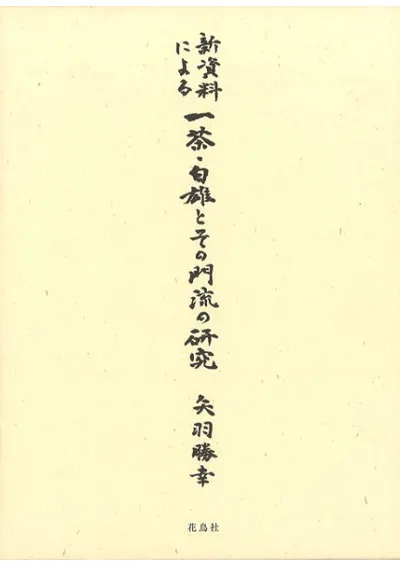 新資料
による
一茶・白雄とその門流の研究
矢羽勝幸
花鳥社